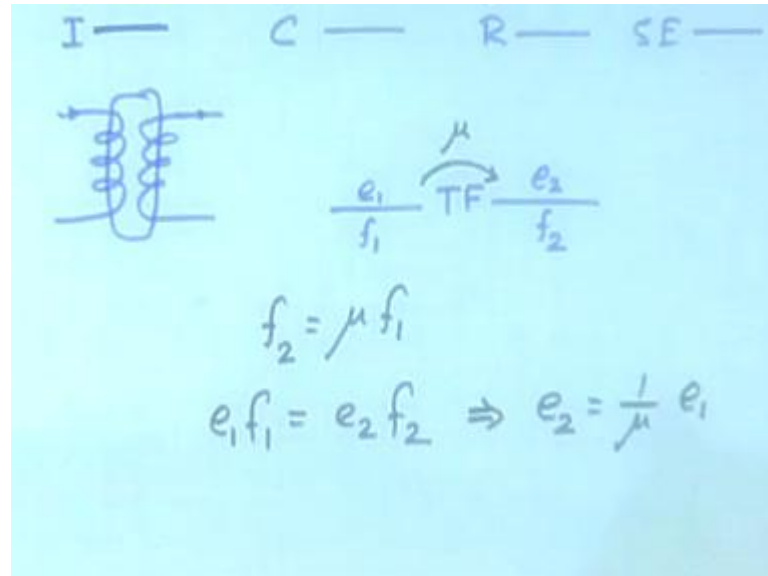 I — C — R — SE —
μ
e₁ TF e₂
f₁ f₂
f₂ = μ f₁
e₁f₁ = e₂f₂ ⇒ e₂ = 1/μ e₁